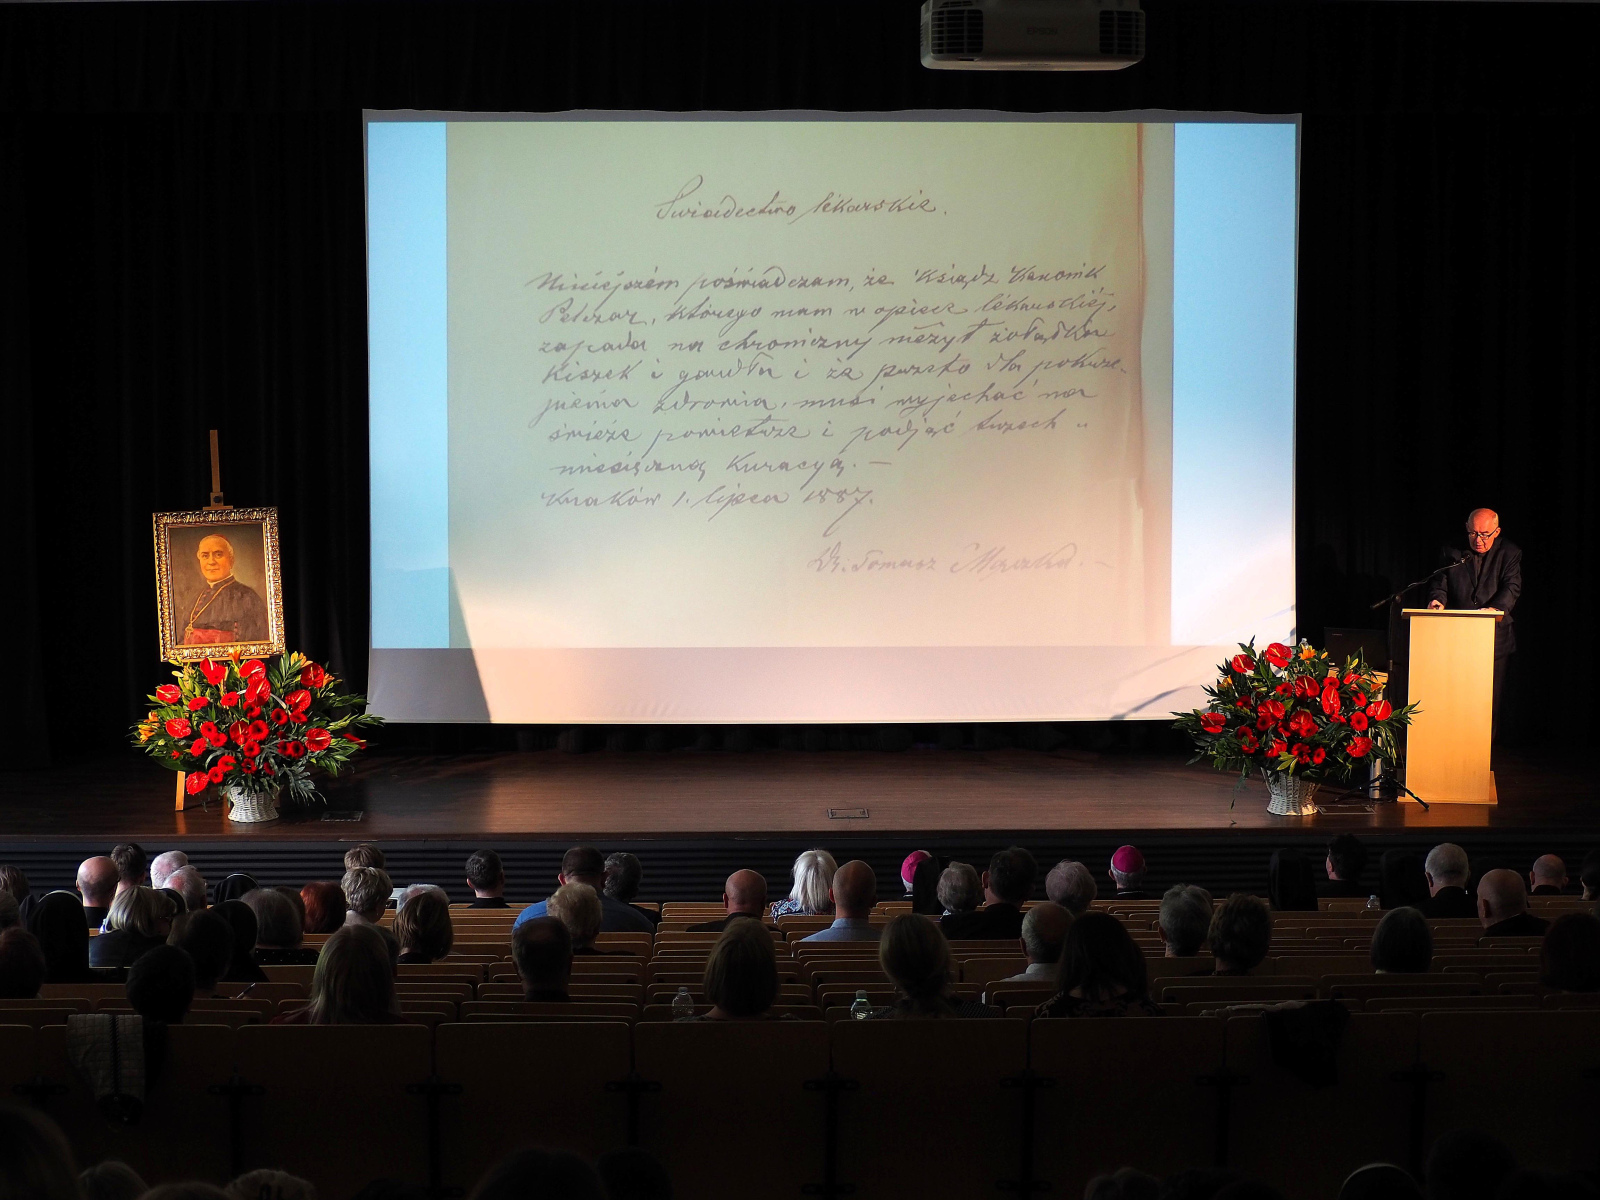 Świadectwo lékarskie.
Niniéjszém poświadczam, że Ksiądz Kanonik
Pelczar, którego mam w opiece lékarskiéj,
zapada na chroniczny niéżyt żołądka
kiszek i gardła i że przeto dla pokrze-
pienia zdrowia, musi wyjechać na
świeże powietrze i podjąć trzech „
miesięczną kuracyą. —
Kraków 1. lipca 1887.
Dr. Tomasz
EPSON